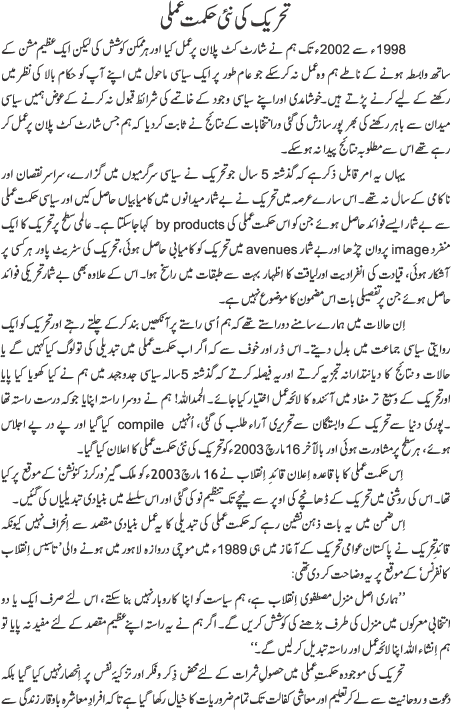 تحریک کی نئی حکمت عملی
1998ء سے 2002ء تک ہم نے شارٹ کٹ پلان پر عمل کیا اور ہر ممکن کوشش کی لیکن ایک عظیم مشن کے
ساتھ وابستہ ہونے کے ناطے ہم وہ عمل نہ کر سکے جو عام طور پر ایک سیاسی ماحول میں اپنے آپ کو حکام بالا کی نظر میں
رکھنے کے لیے کرنے پڑتے ہیں۔ خوشامدی اور اپنے سیاسی وجود کے خاتمے کی شرائط قبول نہ کرنے کے عوض ہمیں سیاسی
میدان سے باہر رکھنے کی بھرپور سازش کی گئی اور انتخابات کے نتائج نے ثابت کر دیا کہ ہم جس شارٹ کٹ پلان پر عمل کر
رہے تھے اس سے مطلوبہ نتائج پیدا نہ ہو سکے۔
یہاں یہ امر قابل ذکر ہے کہ گذشتہ 5 سال جو تحریک نے سیاسی سرگرمیوں میں گزارے، سراسر نقصان اور
ناکامی کے سال نہ تھے۔ اس سارے عرصہ میں تحریک نے بے شمار میدانوں میں کامیابیاں حاصل کیں اور سیاسی حکمت عملی
سے بے شمار ایسے فوائد حاصل ہوئے جن کو اس حکمت عملی کی by products کہا جاسکتا ہے۔ عالمی سطح پر تحریک کا ایک
منفرد image پروان چڑھا اور بے شمار avenues میں تحریک کو کامیابی حاصل ہوئی، تحریک کی سٹریٹ پاور ہر کسی پر
آشکار ہوئی، قیادت کی انفرادیت اور لیاقت کا اظہار بہت سے طبقات میں راسخ ہوا۔ اس کے علاوہ بھی بے شمار تحریکی فوائد
حاصل ہوئے جن پر تفصیلی بات اس مضمون کا موضوع نہیں ہے۔
اِن حالات میں ہمارے سامنے دو راستے تھے کہ ہم اُسی راستے پر آنکھیں بند کر کے چلتے رہتے اور تحریک کو ایک
روایتی سیاسی جماعت میں بدل دیتے۔ اس ڈر اور خوف سے کہ اگر اب حکمت عملی میں تبدیلی کی تو لوگ کیا کہیں گے یا
حالات و نتائج کا دیانتدارانہ تجزیہ کرتے اور یہ فیصلہ کرتے کہ گذشتہ 5 سالہ سیاسی جدوجہد میں ہم نے کیا کھویا کیا پایا
اور تحریک کے وسیع تر مفاد میں آئندہ کا لائحہ عمل اختیار کیا جائے۔ الحمدللہ! ہم نے دوسرا راستہ اپنایا جو کہ درست راستہ تھا
۔ پوری دنیا سے تحریک کے وابستگان سے تحریری آراء طلب کی گئی، اُنہیں compile کیا گیا اور پے در پے اجلاس
ہوئے، ہر سطح پر مشاورت ہوئی اور بالآخر 16 مارچ 2003ء کو تحریک کی نئی حکمت عملی کا اعلان کیا گیا۔
اِس حکمت عملی کا باقاعدہ اعلان قائدِ اِنقلاب نے 16 مارچ 2003ء کو ملک گیر ’ورکرز کنونشن‘ کے موقع پر کیا
تھا۔ اس کی روشنی میں تحریک کے ڈھانچے کی اوپر سے نیچے تک تنظیم نو کی گئی اور اس سلسلے میں بنیادی تبدیلیاں کی گئیں۔
اِس ضمن میں یہ بات ذہن نشین رہے کہ حکمت عملی کی تبدیلی کا یہ عمل بنیادی مقصد سے اِنحراف نہیں کیونکہ
قائدِ تحریک نے پاکستان عوامی تحریک کے آغاز میں ہی 1989ء میں موچی دروازہ لاہور میں ہونے والی ’تاسیس اِنقلاب
کانفرنس‘ کے موقع پر یہ وضاحت کر دی تھی:
’’ہماری اصل منزل مصطفوی اِنقلاب ہے، ہم سیاست کو اپنا کاروبار نہیں بنا سکتے، اس لئے صرف ایک یا دو
انتخابی معرکوں میں منزل کی طرف بڑھنے کی کوشش کریں گے۔ اگر ہم نے یہ راستہ اپنے عظیم مقصد کے لئے مفید نہ پایا تو
ہم اِنشاء اللہ اپنا لائحہ عمل اور راستہ تبدیل کر لیں گے۔‘‘
تحریک کی موجودہ حکمتِ عملی میں حصولِ ثمرات کے لئے محض ذِکر و فکر اور تزکیۂ نفس پر اِنحصار نہیں کیا گیا بلکہ
دعوت و روحانیت سے لے کر تعلیم اور معاشی کفالت تک تمام ضروریات کا خیال رکھا گیا ہے تا کہ افرادِ معاشرہ باوقار زندگی سے